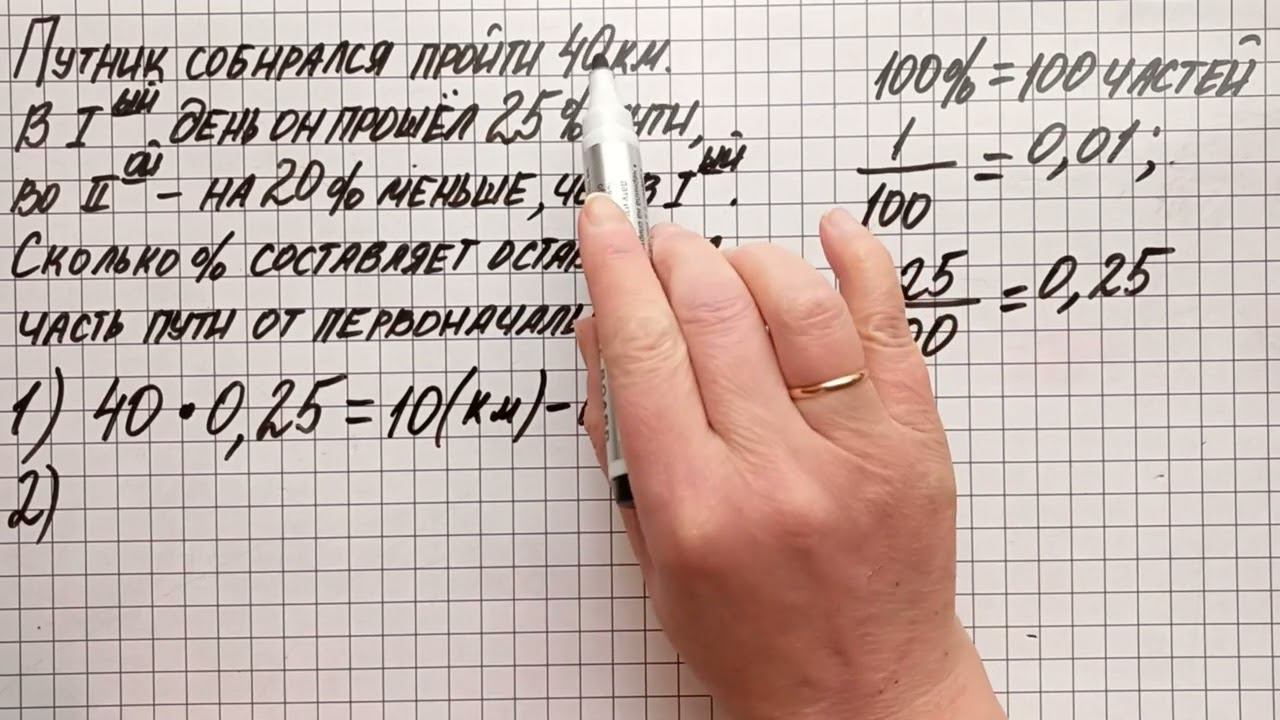 Путник собирался пройти 40 км.
В I ый день он прошёл 25%
во II ой – на 20% меньше, в I ый.
Сколько % составляет
часть пути от
1) 40 • 0,25 = 10 (км) –
2)
100% = 100 частей
1/100 = 0,01;
25 = 0,25